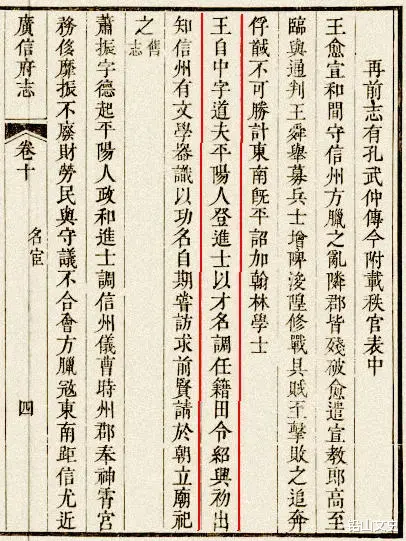 再前志有孔武仲傳今附載秩官表中
王愈宣和間守信州方臘之亂隣郡皆殘破愈遣宣教郎高至
臨與通判王舜舉募兵士增陴浚隍修戰具賊至擊敗之追奔
俘馘不可勝計東南旣平詔加翰林學士
王自中字道夫平陽人登進士以才名調任籍田令紹興初出
知信州有文學器識以功名自期嘗訪求前賢請於朝立廟祀
之舊志
蕭振字德起平陽人政和進士調信州儀曹時州郡奉神霄宮
務侈靡振不廢財勞民與守議不合會方臘寇東南距信尤近
廣信府志
卷十
名宦
四
铅山文史